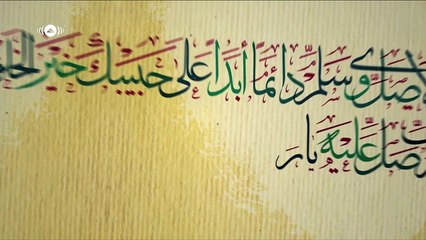 صلِّ وسلم دائماً أبداً على حبيبك خير
صلِّ عليه يار